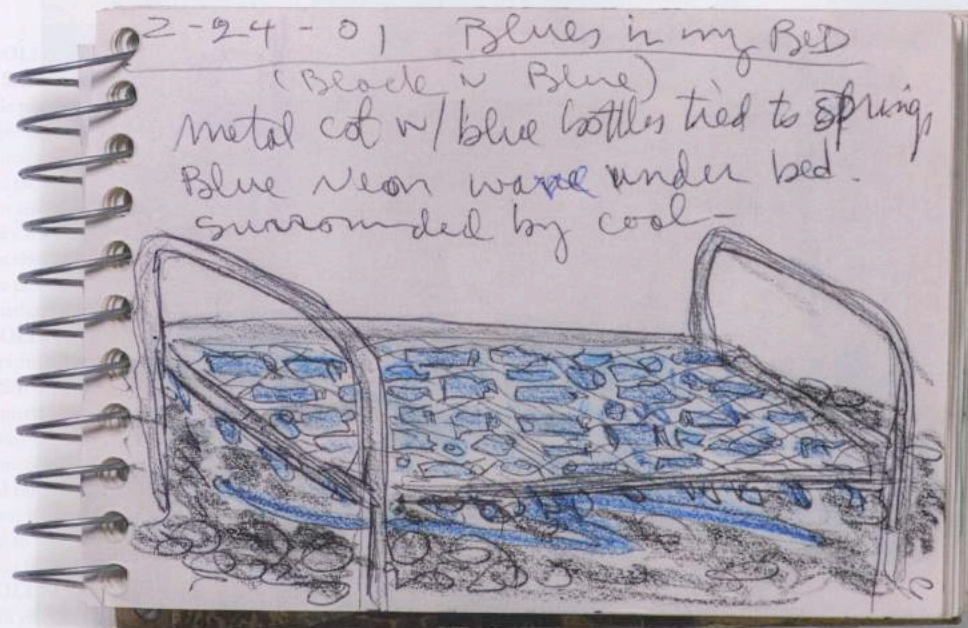 2-24-01 Blues in my BED
(Black n Blue)
metal cot w/ blue bottles tied to springs
Blue Neon wave under bed.
surrounded by coal